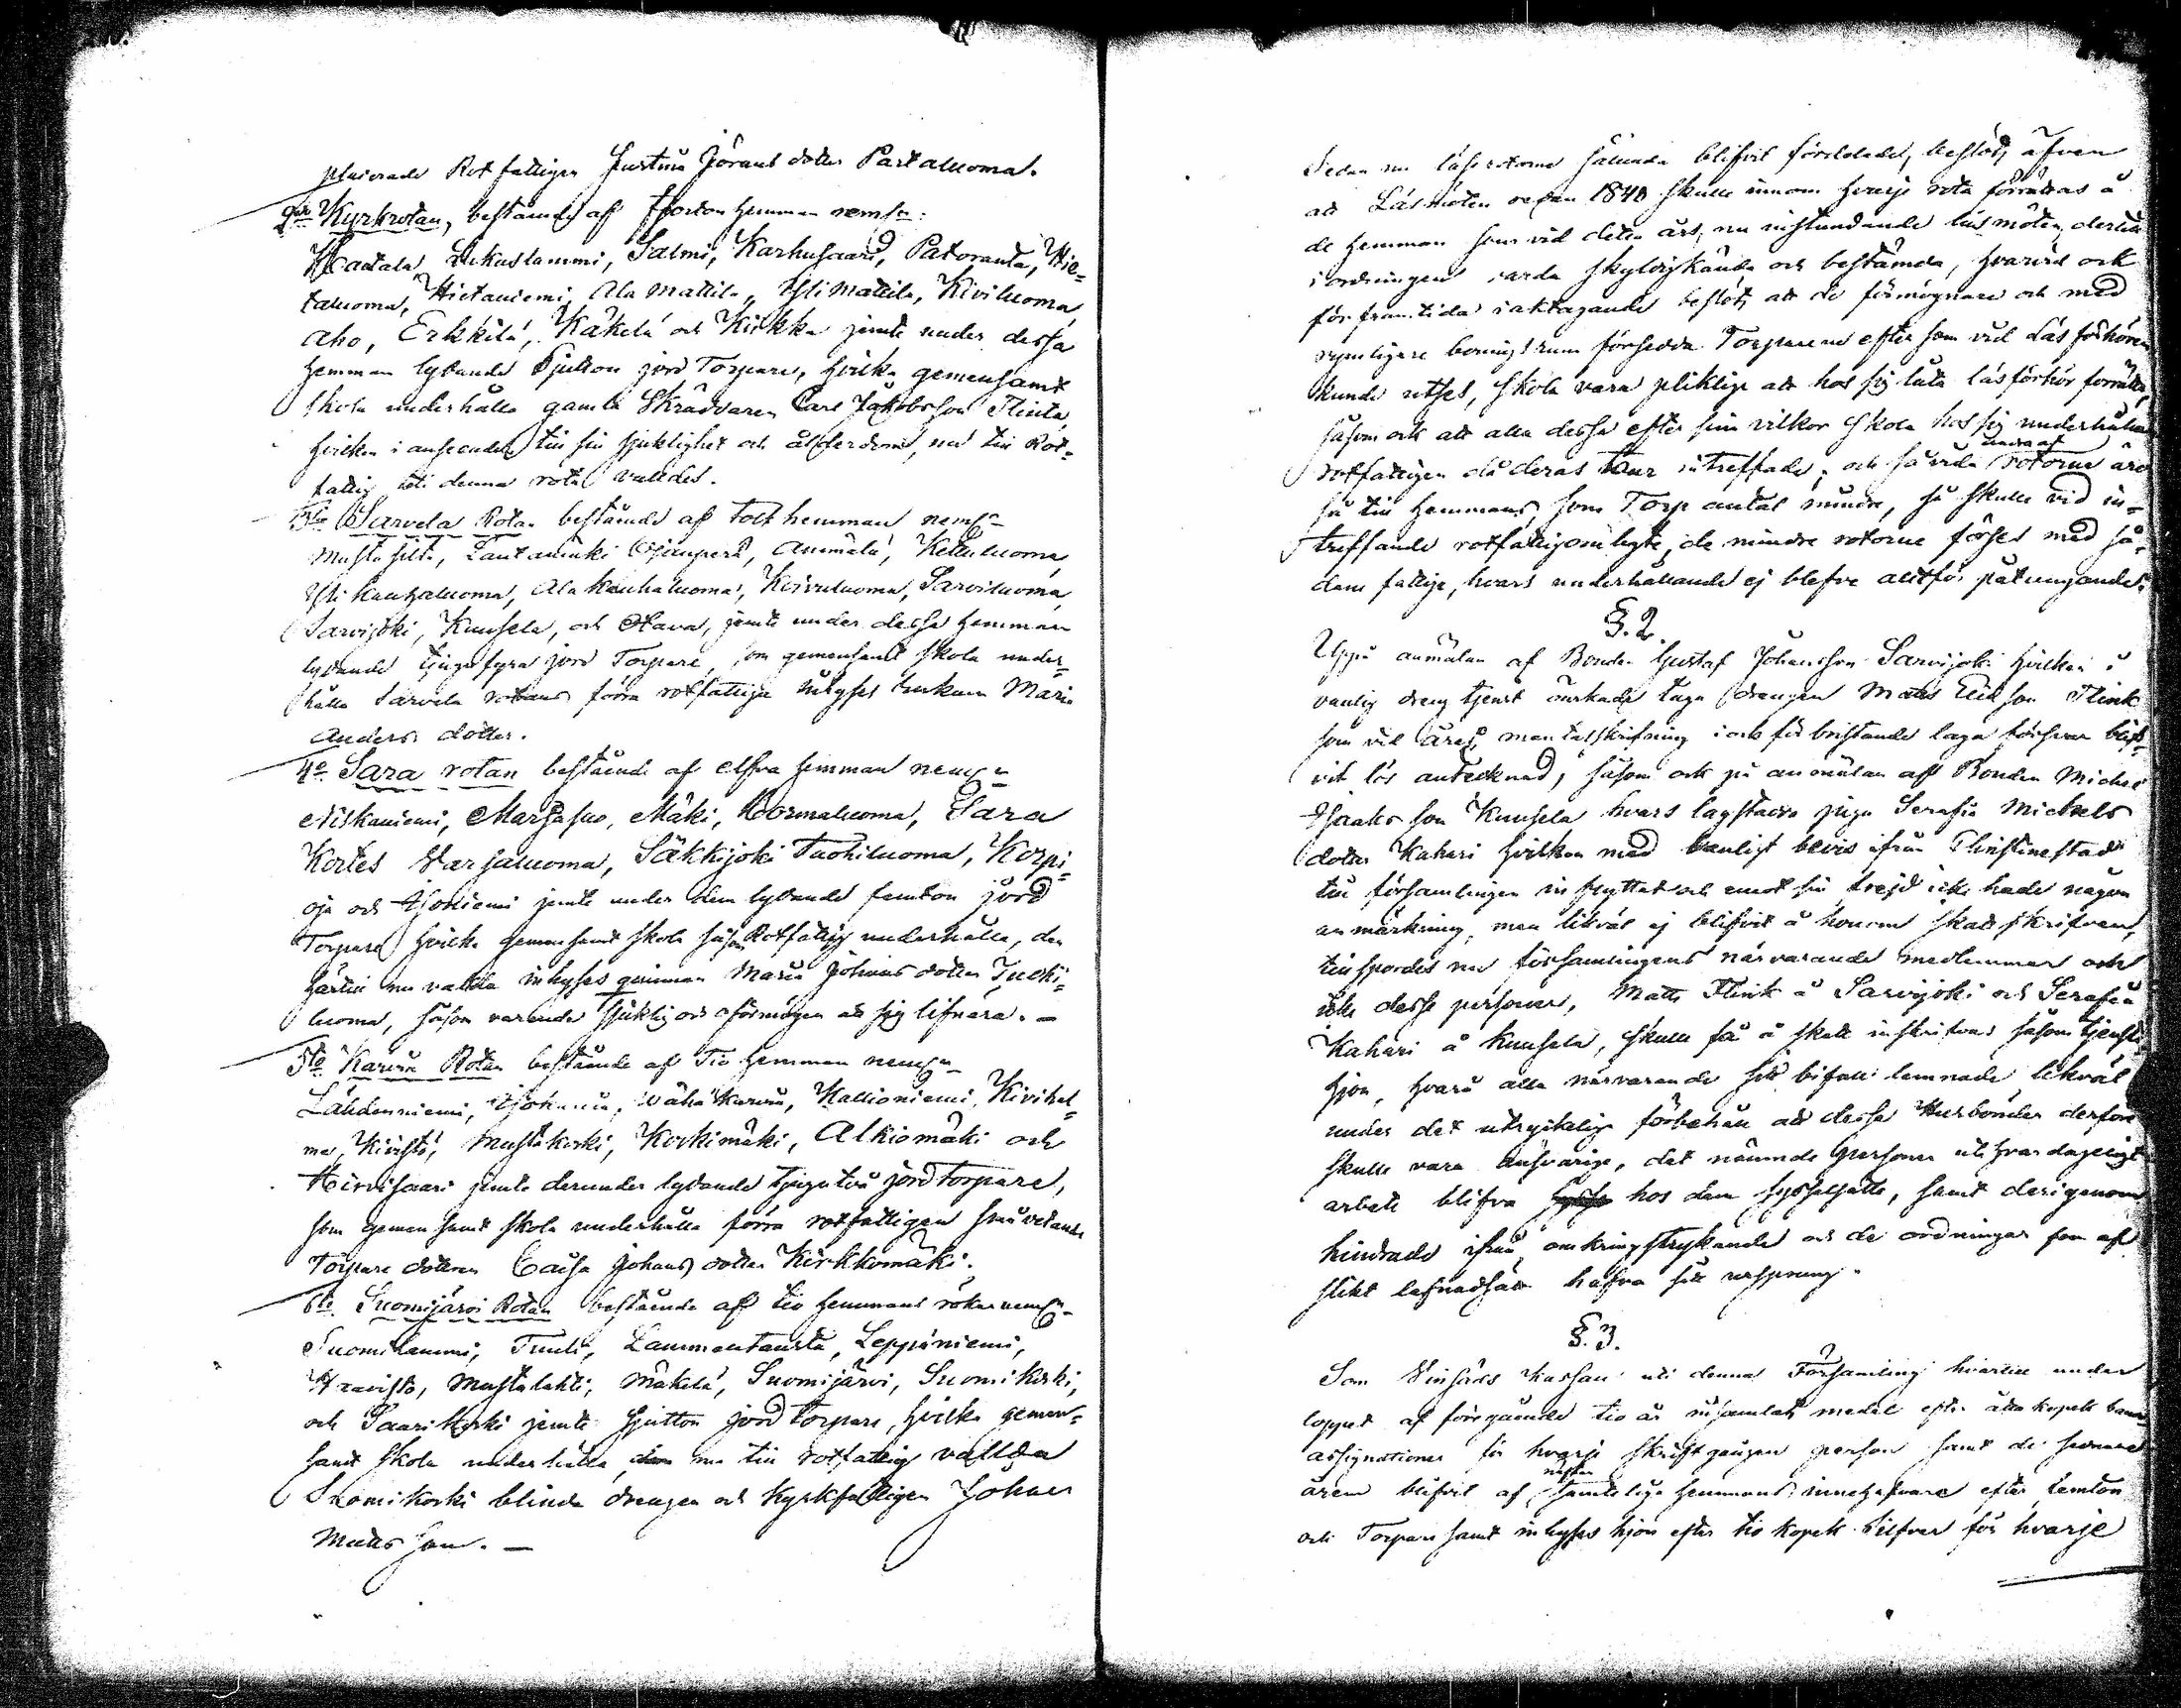 placerade Rotfattigen Justina Jörans dotter Partaluoma.
2dra Kyrkrotan, bestående af fjorton hemman neml:n
Haatala Lukuslammi, Salmi, Karhusaari, Patoranta, Hie-
taluoma, Hietaniemi, Ala Mattila, Yli Mattila, Kiviluoma,
Aho, Erkkilä, Käkelä och Kirkka jemte under dessa
hemman lydande sjutton jord Torpare, hvilka gemensamt
skola underhålla gamla Skräddaren Carl Jakobsson Flinta,
hvilken i anseende till sin sjuklighet och ålderdom, nu till Rot-
fattig uti denna rota valdes.
3dje Sarvela Rotan bestående af Tolf hemman neml:n
Mustapelto, Lautamäki Ojanperä, Ammälä, Kettuluoma,
Yli Kauhaluoma, Ala Kauhaluoma, Koivuluoma, Sarviluoma,
Sarvijoki, Kuusela, och Otava, jemte under dessa hemman
lydande tjugufyra jord Torpare, som gemensamt skola under-
hålla Sarvela rotans förra rotfattiga inhyses enkan Maria
Anders dotter.
4de Sara rotan bestående af elfva hemman neml:n
Niskaniemi, Marjasuo, Mäki, Kormaluoma, Sara
Kortes Varjaluoma, Säkkijoki Tuohiluoma, Korpi-
oja och Isoniemi jemte under dem lydande femton jord
Torpare hvilka gemensamt skola såsom Rotfattig underhålla, den
härtill nu valda inhyses qvinnan Maria Johans dotter Tuohi-
luoma, såsom varande sjuklig och oförmögen att sig lifnära. –
5te Karvia Rotan bestående af Tio hemman neml:n
Lähdenniemi, Ojokumu, Vähä Karvia, Kallioniemi, Kivihal-
me, Kivistö, Mustakoski, Koskimäki, Alkiomäki och
Hirvisaari jemte derunder lydande tjugutvå jord torpare,
som gemensamt skola underhålla förra rotfattigen svagvetande
Torpare dottern Caisa Johans dotter Kirkkomäki.
6te Suomijärvi Rotan bestående af tio hemmans rökar neml:n
Suomilammi, Tuuli, Lammentausta, Leppäniemi,
Kravistö, Mustalahti, Mäkelä, Suomijärvi, Suomikoski,
och Saarikoski jemte sjutton jord torpare, hvilka gemen-
samt skola underhålla den nu till rotfattig vallda
Suomikoski blinda drengen och Kyrkfattigen Johan
Matts son. –
Sedan nu läserotorne sålunda blifvit fördelade, beslöts äfven
att Läsmöten redan 1840 skulle innom hvarje rota förrättas å
de hemman som vid detta års, nu instundande läsmöten, dertill
i ordningen varda skyldigkände och bestämda, hvarvid ock
för framtida iakttagande beslöts att de förmögnare och med
rymligare boningsrum försedda Torparena efter som vid Läsförhören
kunde utses, skola vara pliktige att hos sig låta läsförhör förrättas,
såsom ock att alla dessa efter sina vilkor skola hos sig underhålla
rotfattigen då deras tour inträffade; och såvida andra af rotorne äro
så till Hemmans, som Torp antal mindre, så skulle vid in-
träffande rotfattigombyte, de mindre rotorne förses med så-
dan fattige, hvars underhållande ej blefve alltför påtungande.
§. 2.
Uppå anmälan af Bonden Gustaf Johansson Sarvijoki hvilken i
vanlig dreng tjenst önskade taga drengen Matts Erik son Flink
som vid årets mantalsskrifning i och för bristande laga försvar blif-
vit lös antecknad; såsom ock på anmälan af Bonden Michel
Isaks son Kuusela hvars lagstadda piga Serafia Michels
dotter Kahari hvilken med vanligt bevis ifrån Christinestad
till församlingen inflyttat och emot sin frejd icke hade någon
anmärkning, men likväl ej blifvit å honom skattskrifven,
tillspordes nu församlingens närvarande medlemmar om
icke desse personer, Matts Flink å Sarvijoki och Serafia
Kahari å Kuusela, skulle få å skatt inskrifvas såsom tjenste
hjon, hvartill alla närvarande sitt bifall lemnade likväl
under det utryckliga förbehåll att desse Husbönder derfore
skulle vara ansvarige, det nämnde personer uti hvardagligt
arbete blifva hos dem sysselsatte, samt derigenom
hindrade ifrån omkringstrykande och de oordningar som af
slikt lefnadssätt hafva sitt ursprung.
§. 3.
Som Vinfäds Kassan uti denna Församling hvartill under
loppet af föregående tio år insamlats medel efter åtta kopek banco
assignationer för hvarje skriftgången person samt de sednare
åren blifvit af nästan samtelige hemmans innehafvare efter femton
och Torpare samt inhyses hjon efter tio kopek Silfver för hvarje